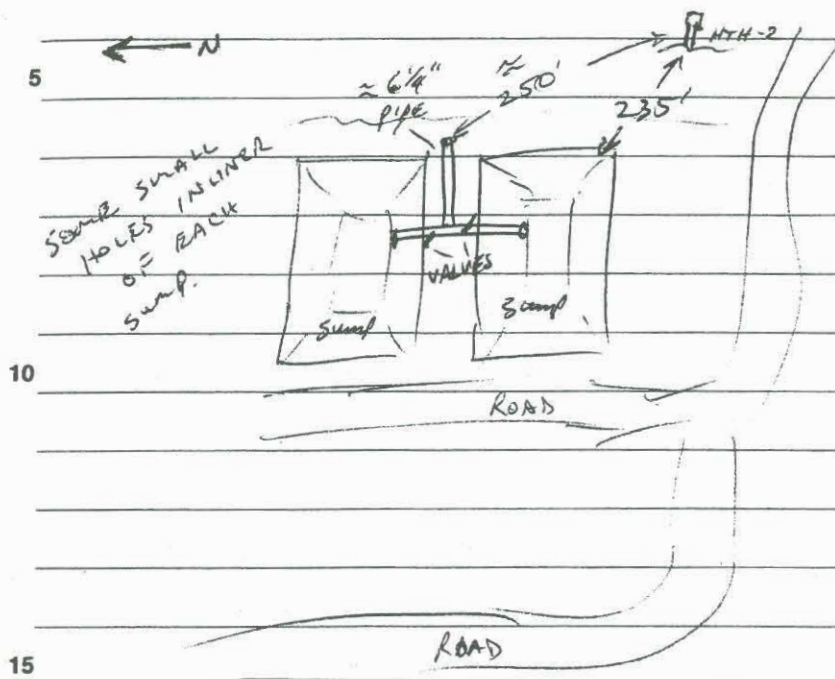 N
HTH-2
5
≈ 6 1/4"
PIPE
≈
250'
235'
SOME SMALL
HOLES IN LINER
OF EACH
SUMP.
VALVES
Sump
Sump
10
ROAD
ROAD
15